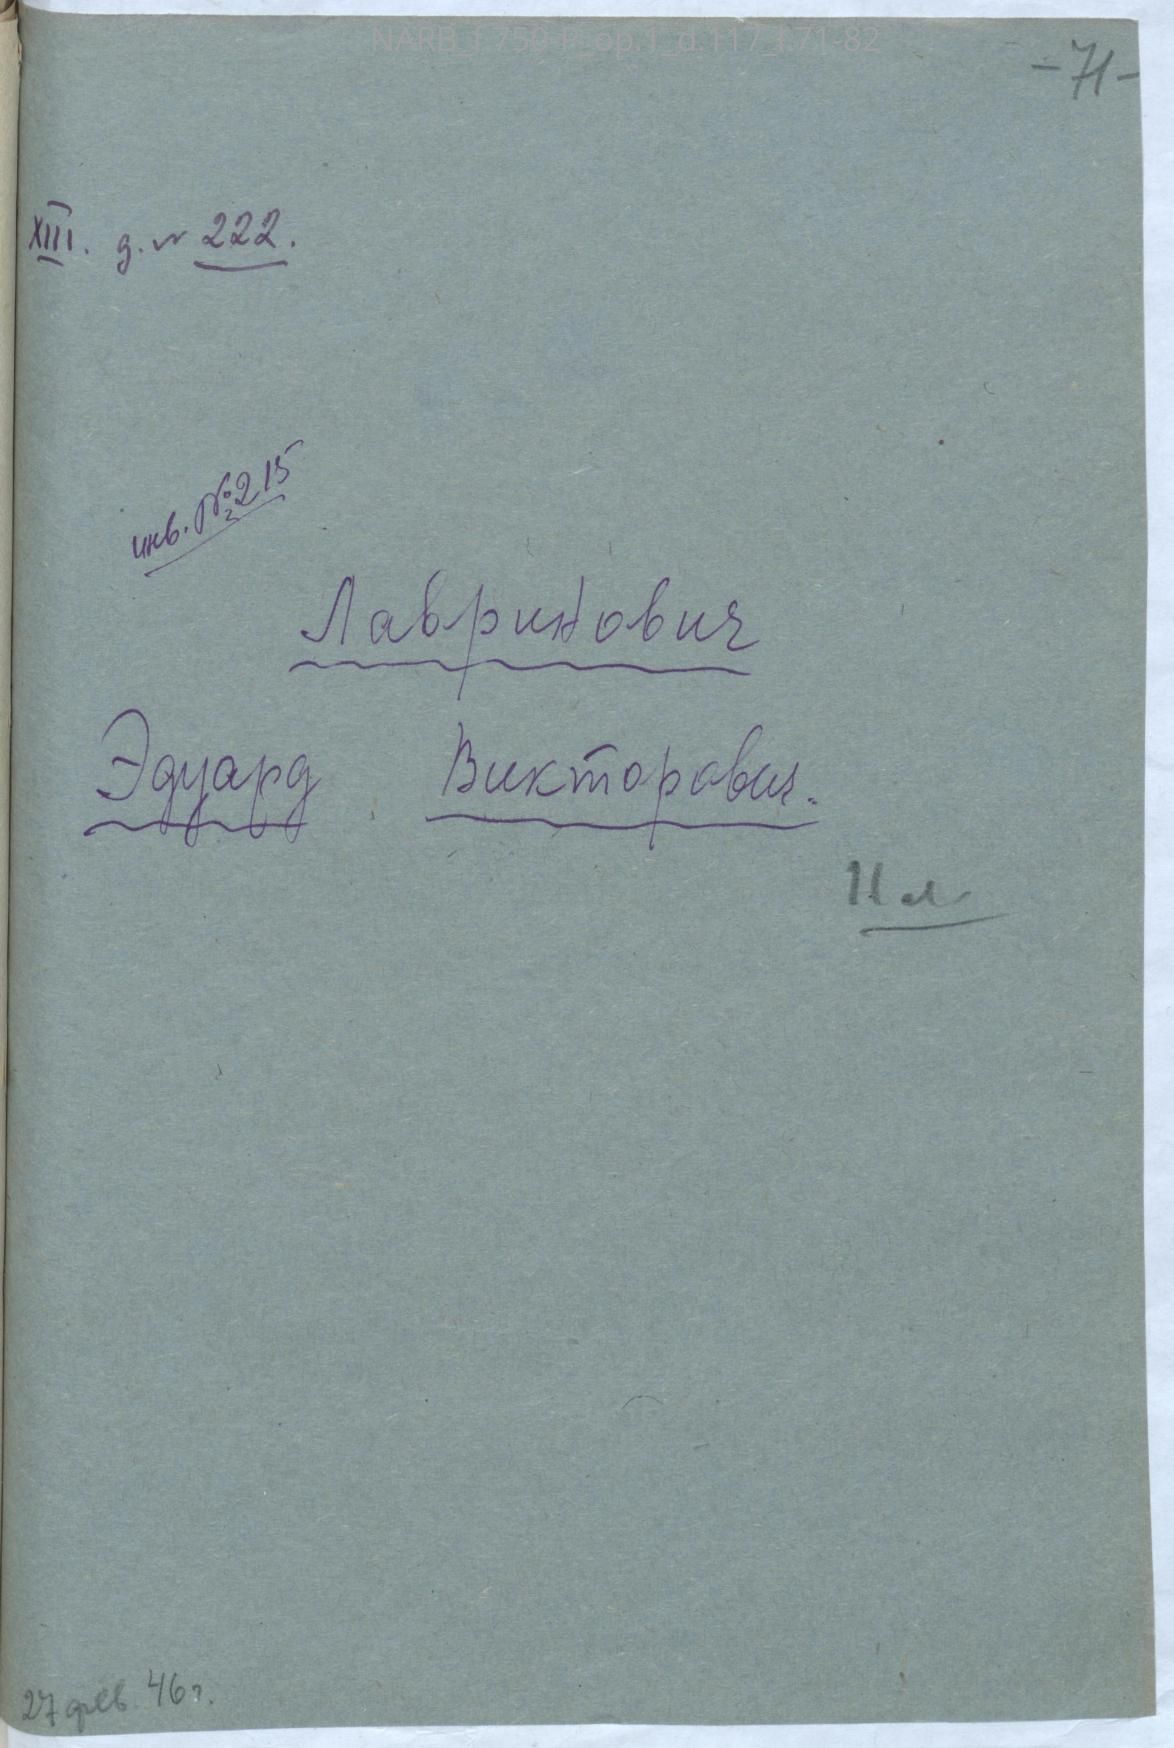 NARB_f.750-P_op.1_d.117_l.71-82
-71-
XIII. д. № 222.
инв. № 215
Лавринович
Эдуард Викторович.
11 л
27 фев. 46 г.